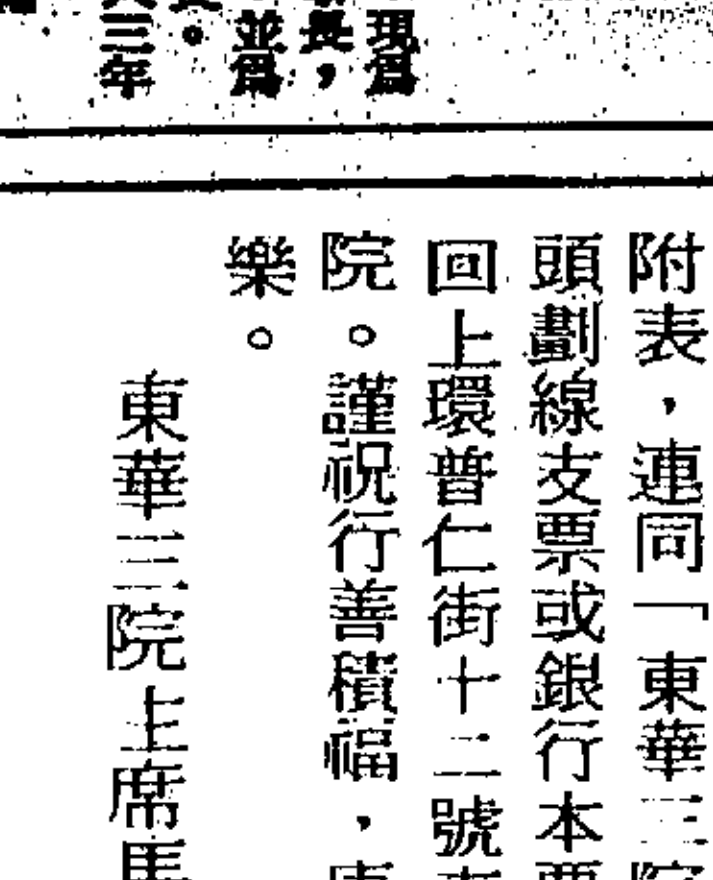 現爲
長，
並爲
。
三年
附表，連同「東華三院
頭劃線支票或銀行本票
回上環普仁街十二號東
院。謹祝行善積福，康
樂。
東華三院主席馬